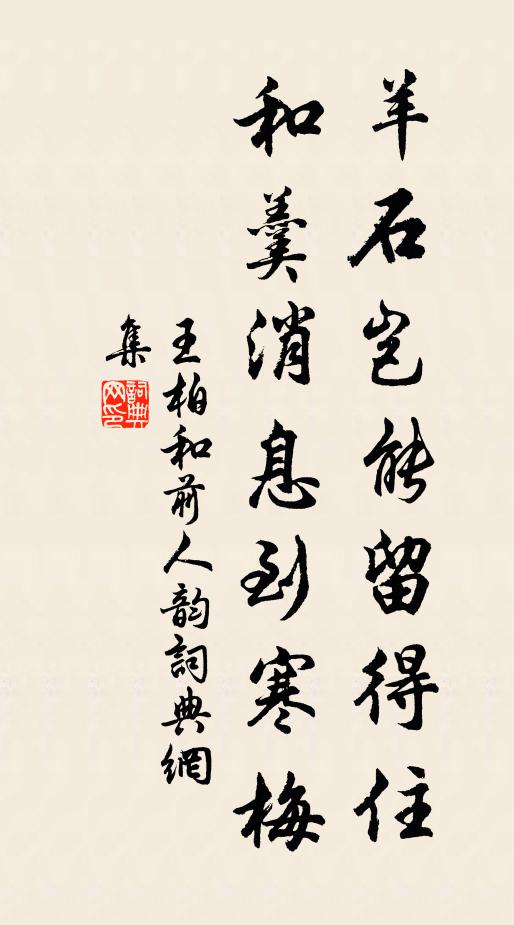 羊石岂能留得住
和羹消息到寒梅
王柏和前人韵詞典網
集
詞典网印